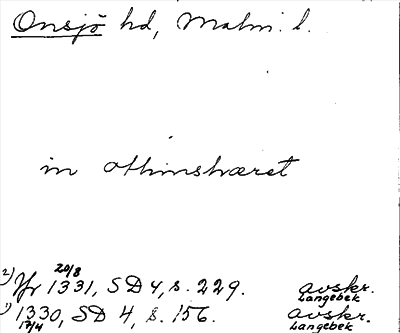 Onsjö hd, Malm. l.
in othinshæret
2) Yr 20/8 1331, SD 4, s. 229. avskr. Langebek
1) 1330, 17/4 SD 4, s. 156. avskr. Langebek